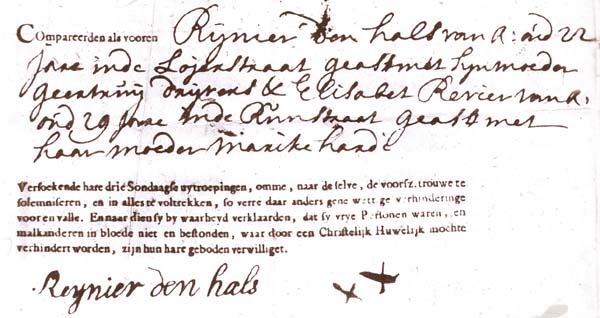 Compareerden als vooren Reijnier den hals van A: oud 22
Jare inde Loijerstraat geast met sijn moeder
Geertruij & Elisabet Revier van A.
oud 29 Jare inde Runstraat geast met
haar moeder Marike
Versoekende hare drie Sondaagse uytroepingen, omme, naar de selve, de voorsz. trouwe te
solemniseren, en in alles te voltrekken, so verre daar anders gene wettige verhinderinge
voor en valle. En naar dien sy by waarheyd verklaarden, dat sy vrye Personen waren, en
malkanderen in bloede niet en bestonden, waar door een Christelijk Huwelijk mochte
verhindert worden, zijn hun hare geboden verwilliget.
Reijnier den hals